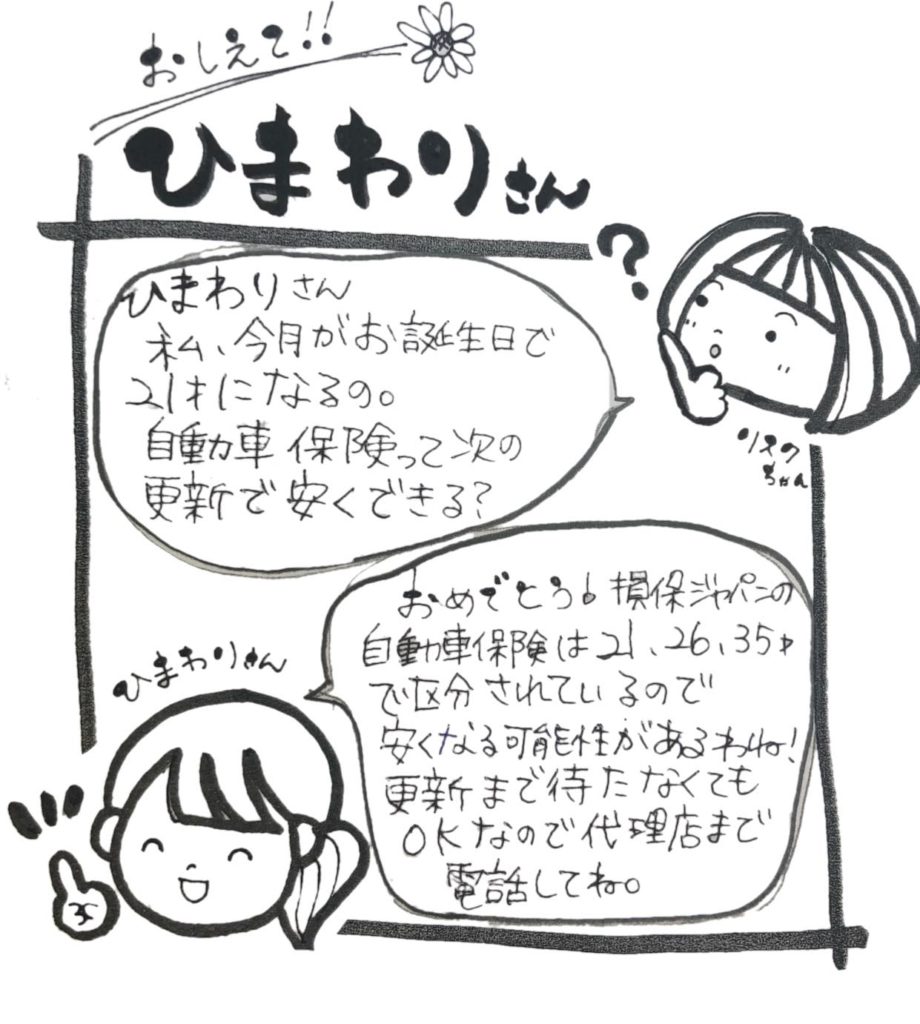 おしえて!!
ひまわりさん
?
ひまわりさん
私、今月がお誕生日で
21才になるの。
自動車保険って次の
更新で安くできる?
リスク
ちゃん
おめでとう! 損保ジャパンの
自動車保険は21、26、35才
で区分されているので
安くなる可能性があるわね!
更新まで待たなくても
OKなので代理店まで
電話してね。
ひまわりさん